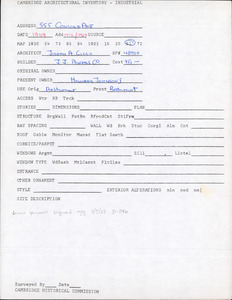 CAMBRIDGE ARCHITECTURAL INVENTORY - INDUSTRIAL
ADDRESS 555 Concord Ave
DATE 1948 Add SOURCE
MAP 1830 54 73 86 94 1903 16 30 71
ARCHITECT Joseph A. Cost
BUILDER J.J. Cost
ORIGINAL OWNER
PRESENT OWNER Howard Johnson
USE Orig Restaurant Prsnt Restaurant
ACCESS Wtr RR Trck
STORIES DIMENSIONS PLAN
STRUCTURE
BAY SPACING WALL Wd Brk Stuc Corgl Alm Cct
ROOF Gable Monitor Hansel Flat Sawth
CORNICE/PARPIT
WINDOWS Argmt Sill Lintel
WINDOW TYPE WdSash MtlCasmt FlGlas
ENTRANCE
OTHER ORNAMENT
STYLE EXTERIOR ALTERATIONS min mod maj
SITE DESCRIPTION
Surveyed By Date
CAMBRIDGE HISTORICAL COMMISSION